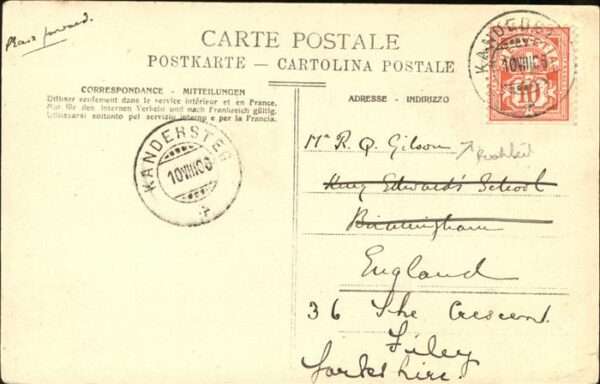 Please forward.
CARTE POSTALE
POSTKARTE — CARTOLINA POSTALE
CORRESPONDANCE - MITTEILUNGEN
Utiliser seulement dans le service intérieur et en France.
Nur für den innern Verkehr und nach Frankreich gültig.
Utilizzarsi soltanto pel servizio interno e per la Francia.
ADRESSE - INDIRIZZO
KANDERSTEG
10 VIII 06
HELVETIA
10
KANDERSTEG
10 VIII 06
Mr R. Q. Gilson
King Edward's School
Birmingham
England
36 The Crescent
Filey
Yorkshire.